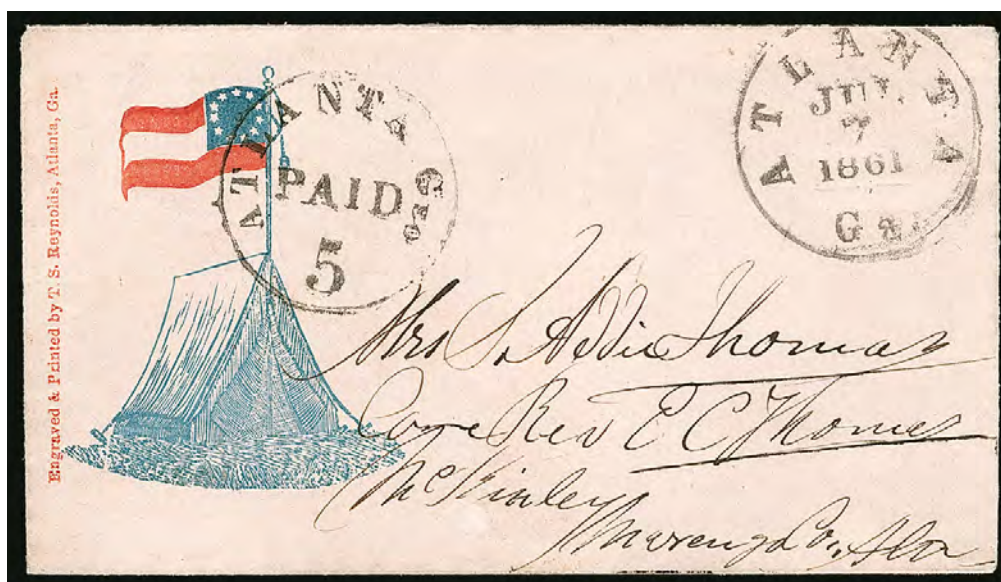 Engraved & Printed by T. S. Reynolds, Atlanta, Ga.
ATLANTA Geo
PAID
5
ATLANTA
JUL
7
1861
Ga.
Mrs S. Addie Thomas
Care Rev E C Thomas
McKinley
Marengo Co., Ala